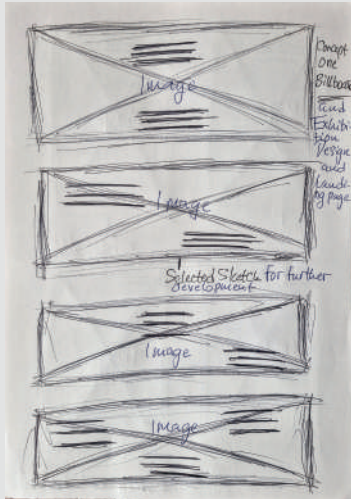 Image
Concept
One
Billboard
and
Exhibi-
tion
Design
and
Landi-
ng page
Image
Selected Sketch for further
development
Image
Image